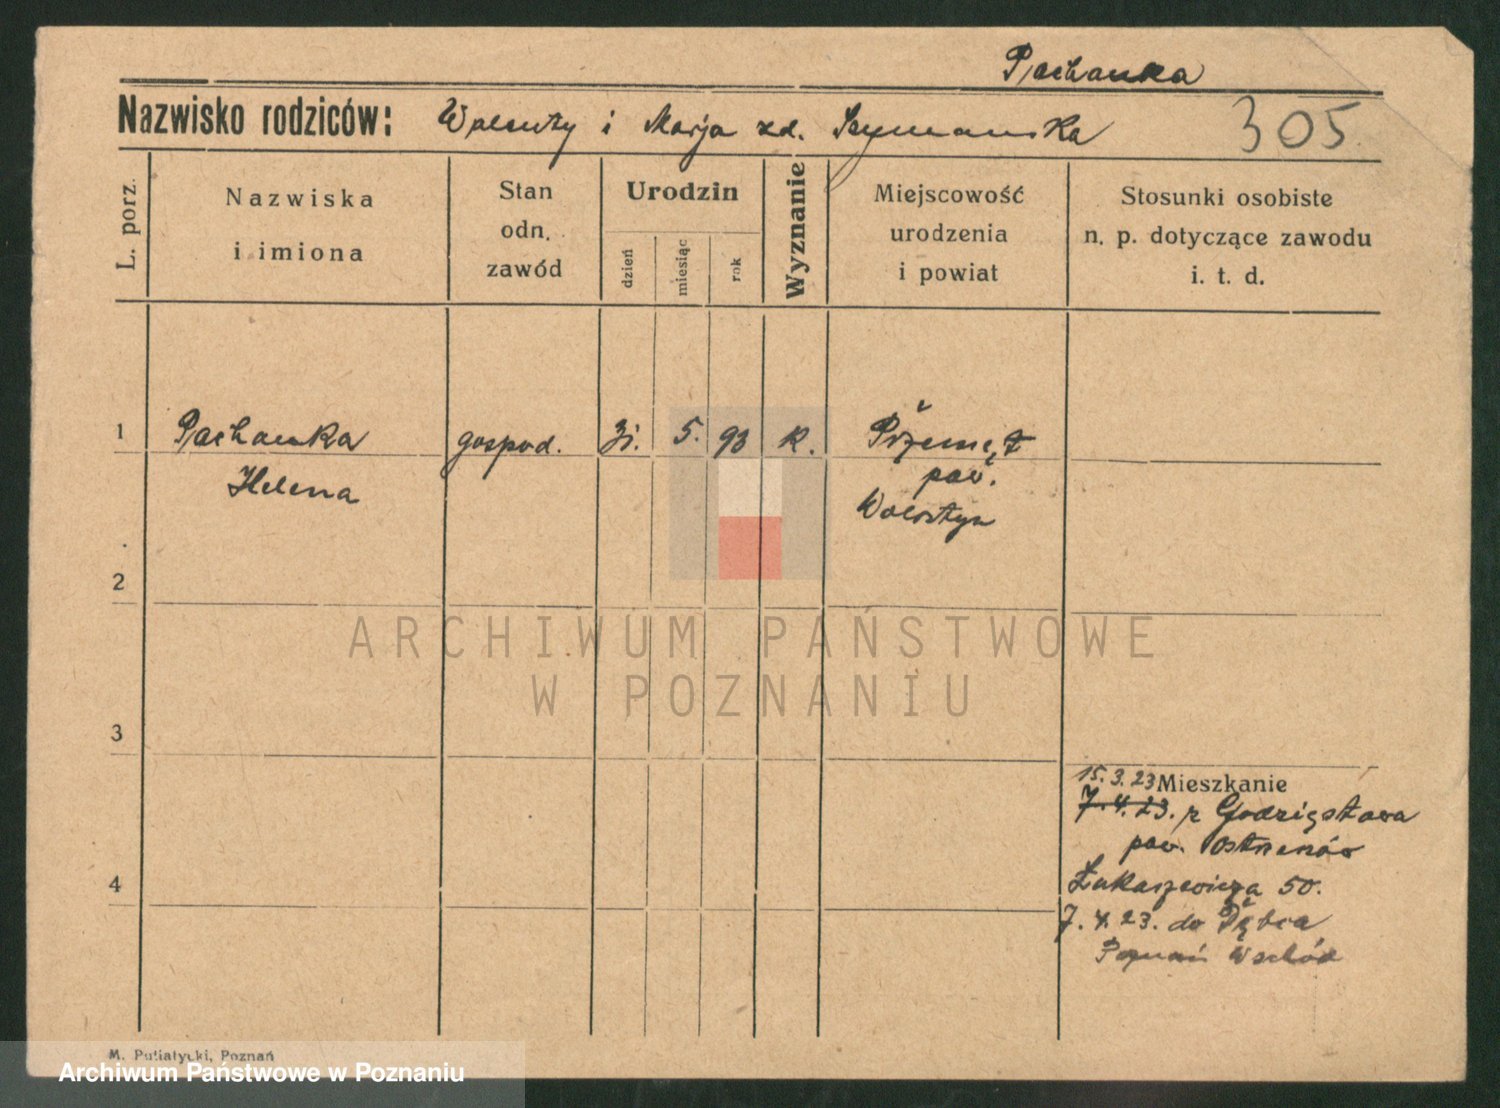 Pachanka
Nazwisko rodziców: Walenty i Marja zd. Szymanska 305.
L. porz.
Nazwiska
i imiona
Stan
odn.
zawód
Urodzin
dzień
miesiąc
rok
Wyznanie
Miejscowość
urodzenia
i powiat
Stosunki osobiste
n. p. dotyczące zawodu
i. t. d.
1 Pachanka gospod. 31. 5. 93 k. Przemęt
Helena pow.
Wolsztyn
2
3
4
15. 3. 23 Mieszkanie
7. 4. 23. z
pow.
Łukaszewicza 50.
7. 4. 23. do Dębca
Poznań Wschód
M. Putiatycki, Poznań
ARCHIWUM PAŃSTWOWE
W POZNANIU
Archiwum Państwowe w Poznaniu